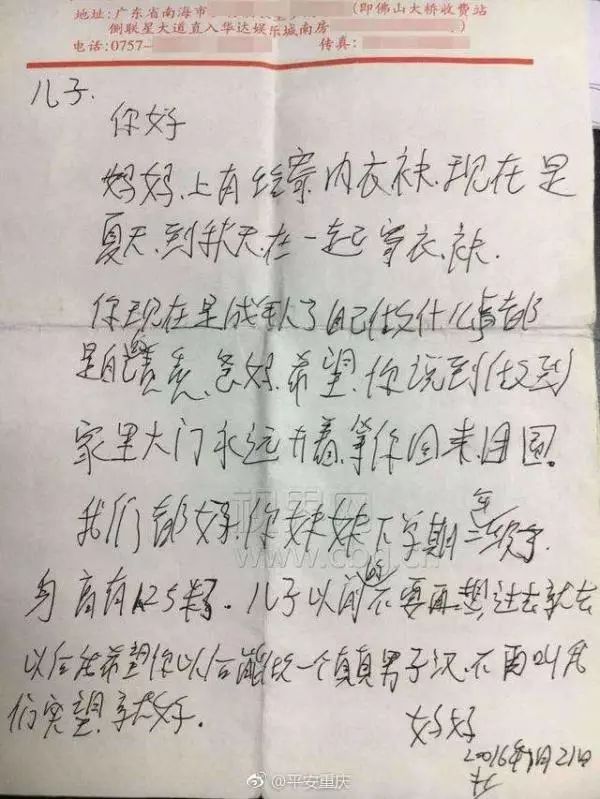 地址:广东省南海市 (即佛山大桥收费站
侧联星大道直入华达娱乐城南房 )
电话:0757- 传真:
儿子.
你好
妈妈.上有给寄内衣袜.现在是
夏天.到秋天.在一起寄衣.袜.
你现在是成人了自己做什么事都
是自己负责.爸妈.希望.你说到做到
家里大门永远开着.等你回来.团圆。
我们都好.你妹妹下学期二年级了.
身高有1.25米了.儿子以前的不要再想过去就去
以后我希望你以后能做一个真真男子汉.不再叫我
们失望就好.
妈妈
2016年 月21日
视界网
www.cbg.cn
@平安重庆